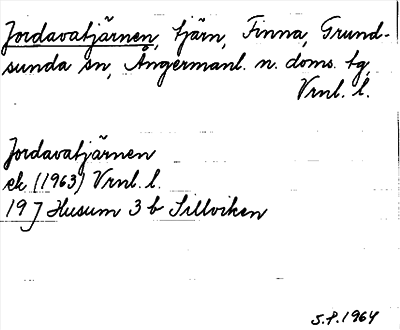 Jordavatjärnen, tjärn, Finna, Grund-
sunda sn, Ångermanl. n. doms. tg,
Vrnl. l.
Jordavatjärnen
ek (1963) Vrnl. l.
19 J Husum 3 b Sillviken
S.P. 1964